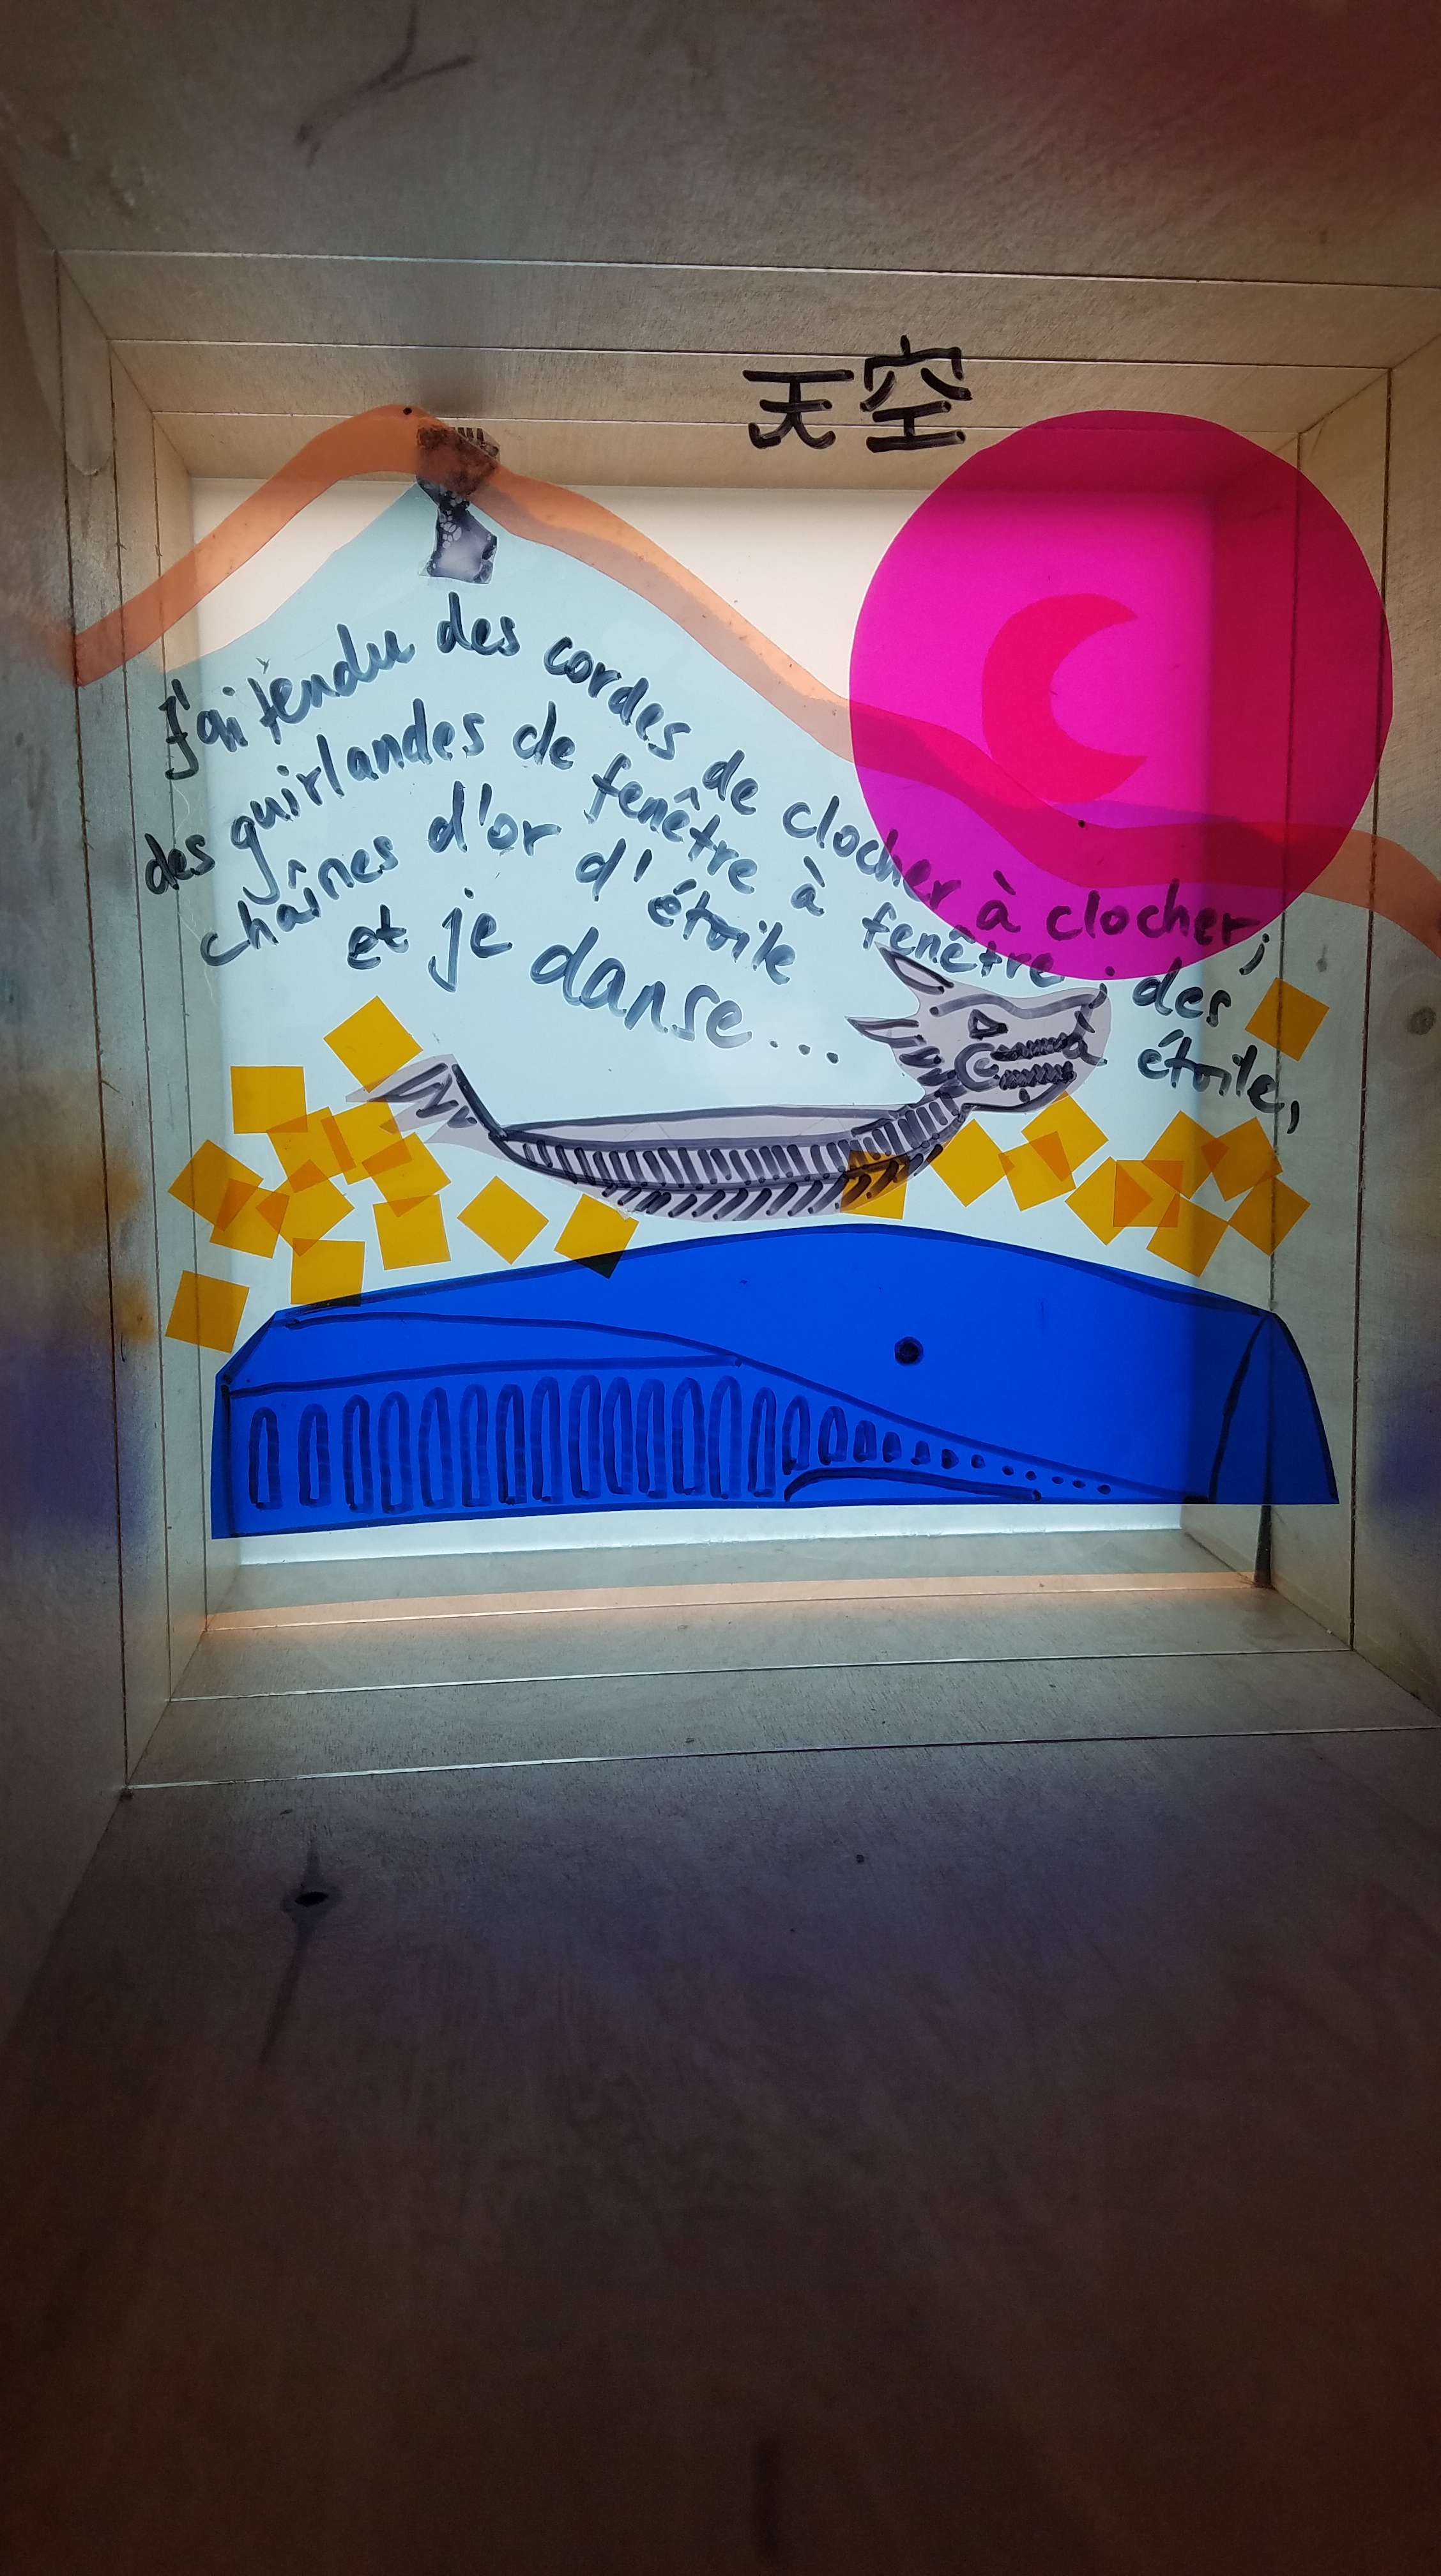 天空
J'ai tendu des cordes de clocher à clocher;
des guirlandes de fenêtre à fenêtre; des
chaînes d'or d'étoile à étoile,
et je danse...